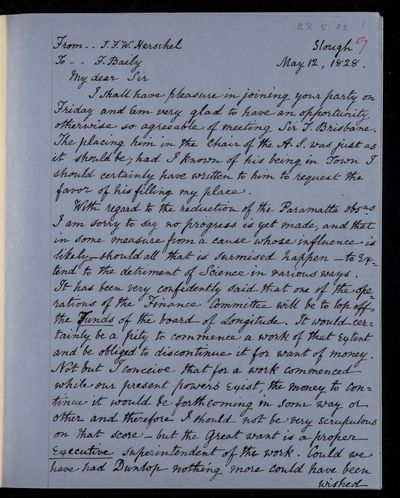 28.5.12
From.. J.F.W. Herschel Slough 9
To -- F. Baily May 12, 1828.
My dear Sir
I shall have pleasure in joining your party on
Friday and am very glad to have an opportunity
otherwise so agreeable of meeting Sir T. Brisbane.
The placing him in the Chair of the A.S. was just as
it should be; had I known of his being in Town I
should certainly have written to him to request the
favor of his filling my place.
With regard to the reduction of the Paramatta obsns.
I am sorry to say no progress is yet made, and that
in some measure from a cause whose influence is
likely – should all that is surmised happen – to Ex-
tend to the detriment of Science in various ways.
It has been very confidently said that one of the ope-
rations of the Finance Committee will be to top off
the Funds of the board of Longitude. It would cer-
tainly be a pity to commence a work of that Extent
and be obliged to discontinue it for want of money.
Not but I conceive that for a work commenced
while our present powers Exist, the money to con-
tinue it would be forthcoming in some way or
other and therefore I should not be very scrupulous
on that score – but the Great want is a proper
Executive superintendent of the work. Could we
have had Dunlop nothing more could have been
wished